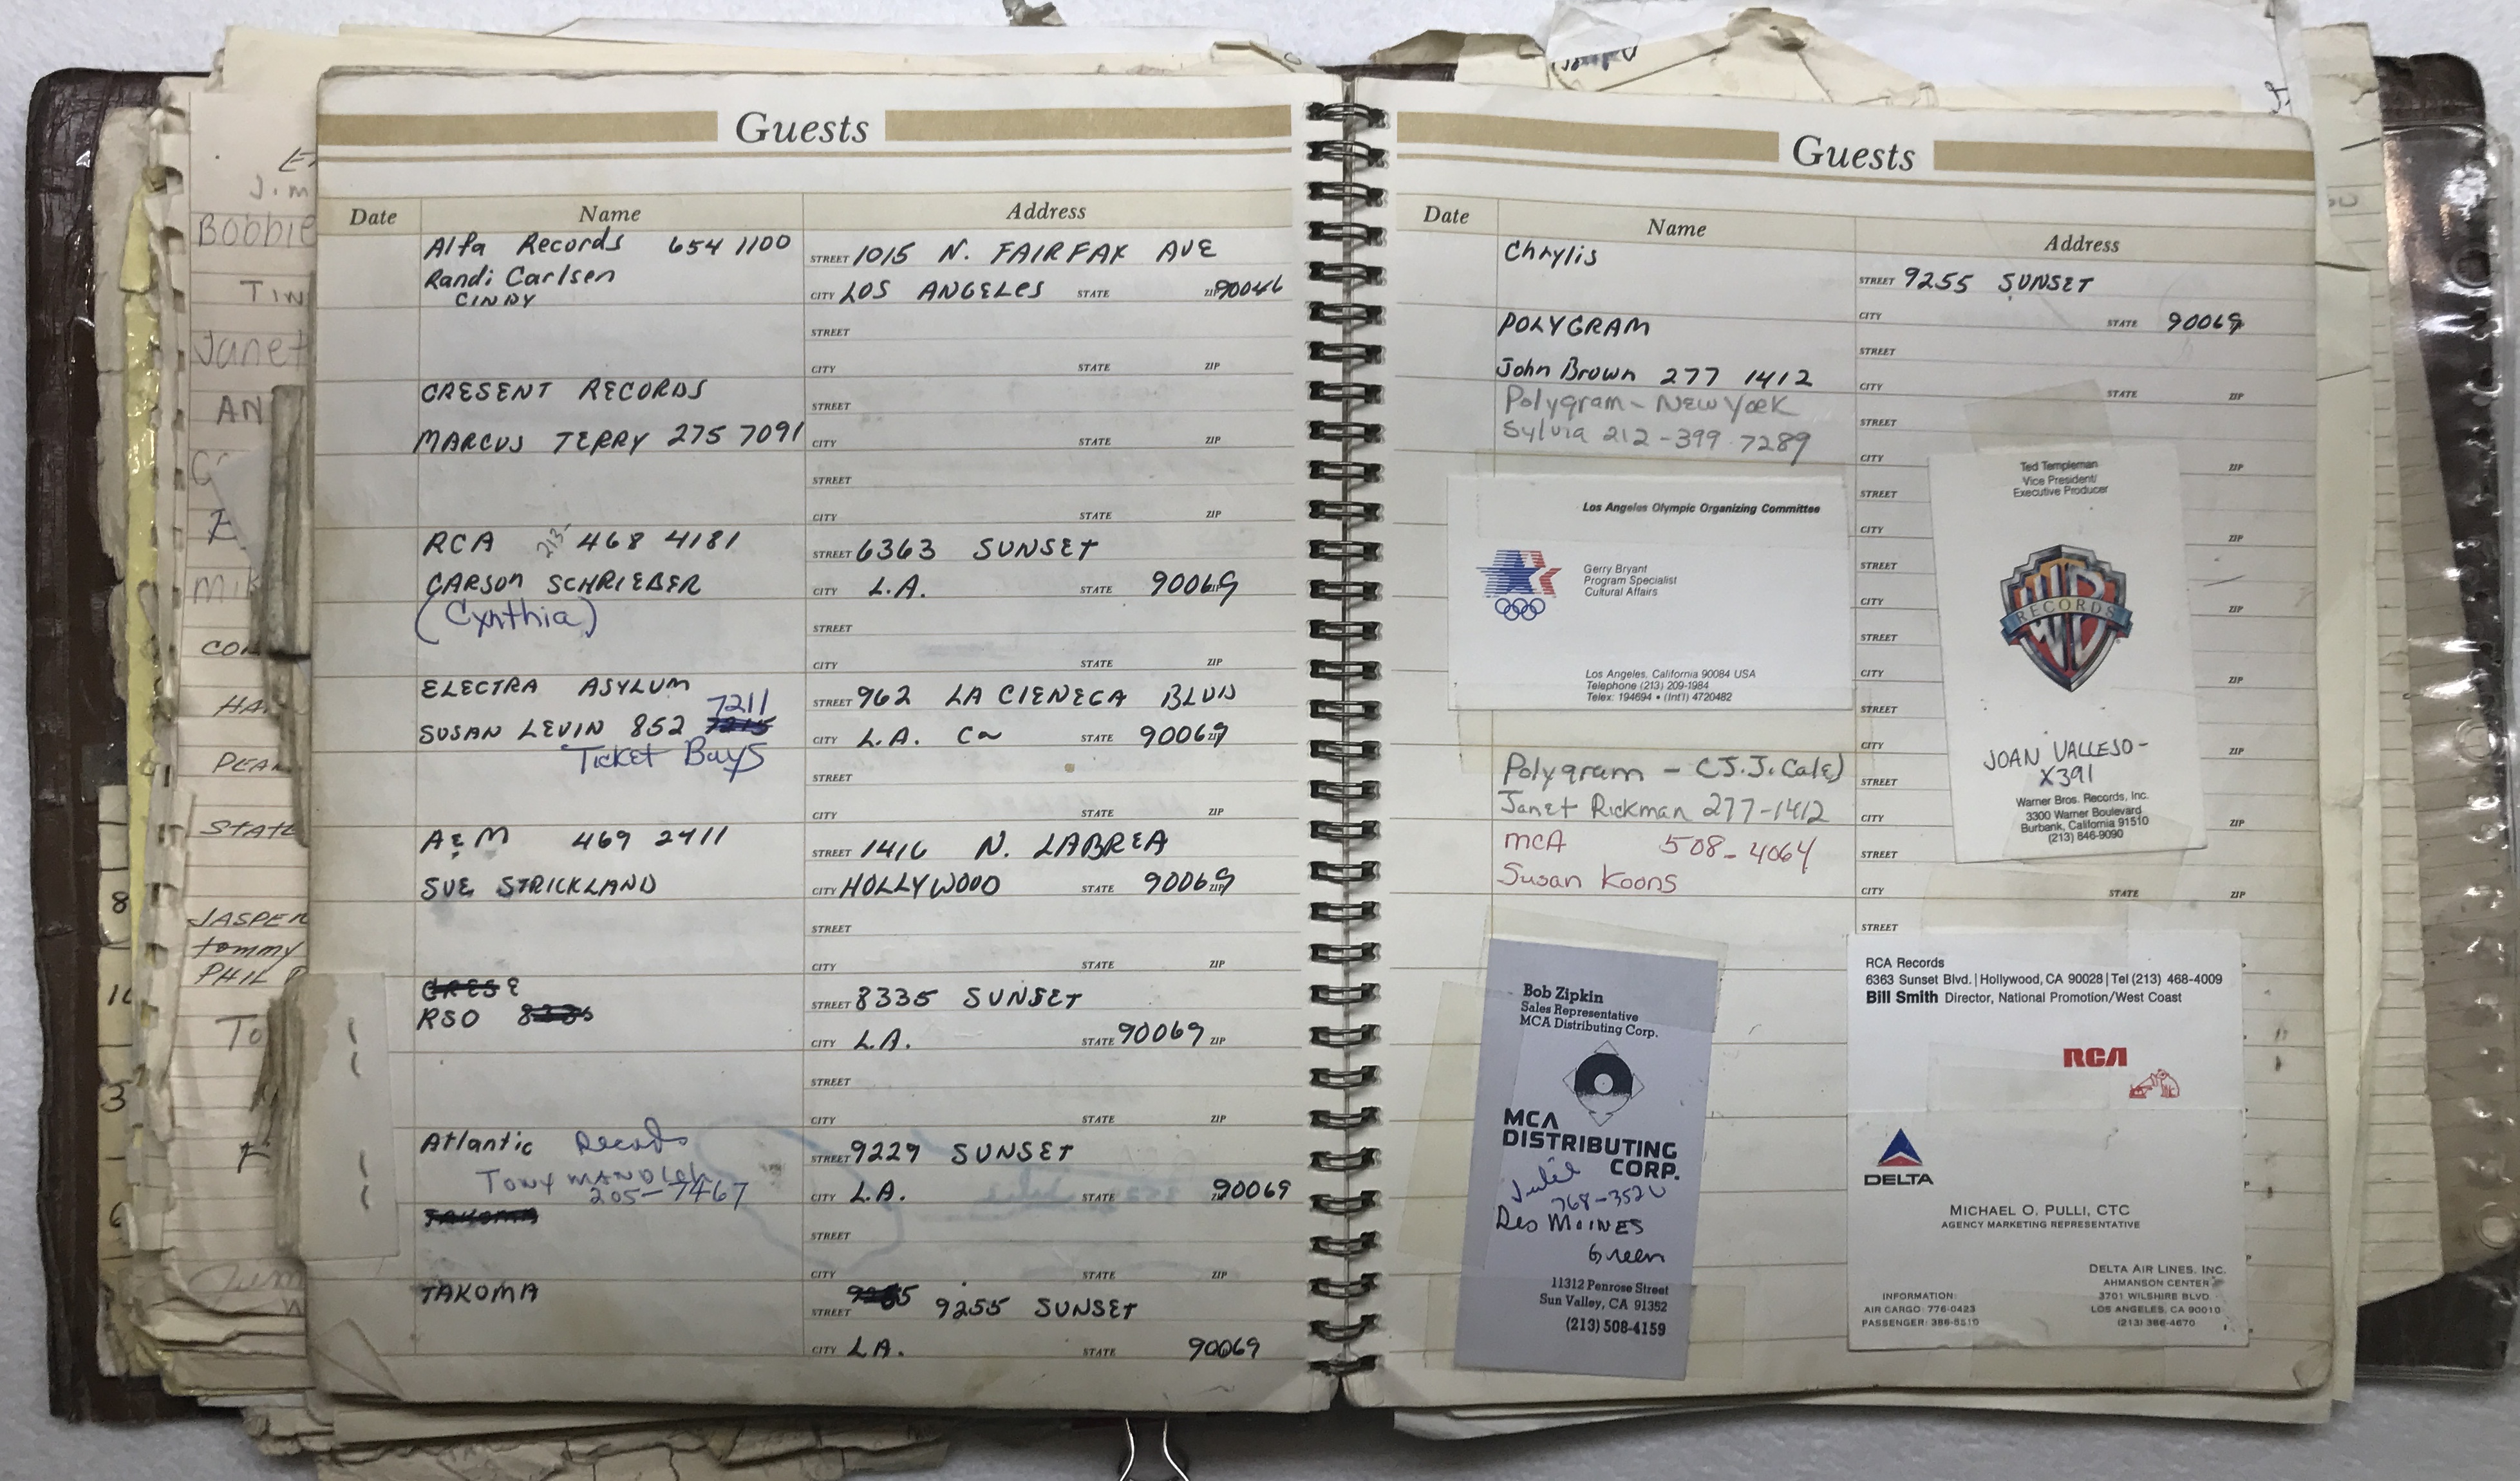 Guests
Date Name Address
Alfa Records 654 1100
Randi Carlsen
CINDY
STREET 1015 N. FAIRFAX AVE
CITY LOS ANGELES STATE ZIP 90046
STREET
CITY STATE ZIP
CRESENT RECORDS
STREET
MARCUS TERRY 275 7091
CITY STATE ZIP
STREET
CITY STATE ZIP
RCA 213- 468 4181
STREET 6363 SUNSET
CARSON SCHRIEBER
CITY L.A. STATE 90069 ZIP
(Cynthia)
STREET
CITY STATE ZIP
ELECTRA ASYLUM
STREET 962 LA CIENEGA BLVD
7211
SUSAN LEVIN 852
CITY L.A. Ca STATE 90069 ZIP
Ticket Buys
STREET
CITY STATE ZIP
A & M 469 2411
STREET 1416 N. LABREA
SUE STRICKLAND
CITY HOLLYWOOD STATE 90069 ZIP
STREET
CITY STATE ZIP
STREET 8335 SUNSET
RSO
CITY L.A. STATE 90069 ZIP
STREET
CITY STATE ZIP
Atlantic Records
STREET 9229 SUNSET
Tony
205-7467
CITY L.A. STATE ZIP 90069
TAKOMA
STREET
CITY STATE ZIP
TAKOMA
STREET 9255 SUNSET
CITY L.A. STATE 90069
Guests
Date Name Address
Chrylis
STREET 9255 SUNSET
CITY STATE 90069
POLYGRAM
STREET
John Brown 277 1412
CITY STATE ZIP
Polygram - New York
STREET
Sylvia 212-399-7289
CITY ZIP
STREET
CITY ZIP
STREET
CITY ZIP
STREET
CITY ZIP
STREET
CITY ZIP
STREET
CITY ZIP
STREET
CITY STATE ZIP
STREET
Los Angeles Olympic Organizing Committee
Gerry Bryant
Program Specialist
Cultural Affairs
Los Angeles, California 90084 USA
Telephone (213) 209-1984
Telex: 194694 • (Int'l) 4720482
Ted Templeman
Vice President/
Executive Producer
WB
RECORDS
JOAN VALLEJO-
X391
Warner Bros. Records, Inc.
3300 Warner Boulevard
Burbank, California 91510
(213) 846-9090
Polygram - (J.J. Cale)
Janet Rickman 277-1412
MCA 508-4064
Susan Koons
Bob Zipkin
Sales Representative
MCA Distributing Corp.
MCA
DISTRIBUTING
CORP.
Julie
768-3520
Des MOINES
Green
11312 Penrose Street
Sun Valley, CA 91352
(213) 508-4159
RCA Records
6363 Sunset Blvd. | Hollywood, CA 90028 | Tel (213) 468-4009
Bill Smith Director, National Promotion/West Coast
RCA
DELTA
MICHAEL O. PULLI, CTC
AGENCY MARKETING REPRESENTATIVE
DELTA AIR LINES, INC.
AHMANSON CENTER
3701 WILSHIRE BLVD.
LOS ANGELES, CA 90010
(213) 386-4670
INFORMATION:
AIR CARGO: 776-0423
PASSENGER: 386-5510
J.m
Bobbie
TIN
Janet
AN
Mik
JASPER
tommy
PHIL
To
8
3
6